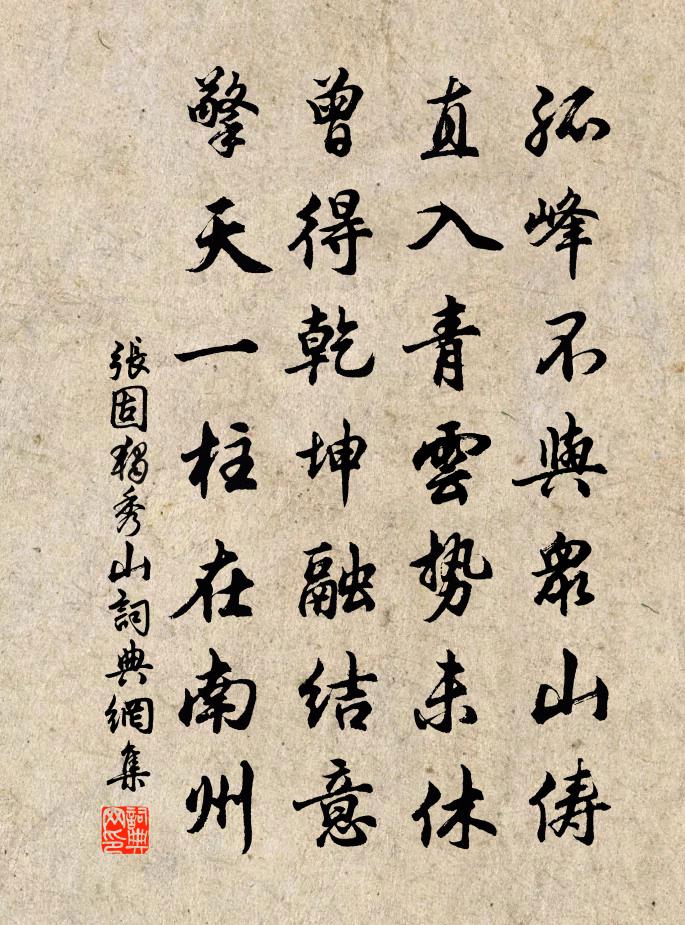 孤峰不與眾山儔
直入青雲勢未休
曾得乾坤融結意
擎天一柱在南州
張固獨秀山詞典網集
詞典網印